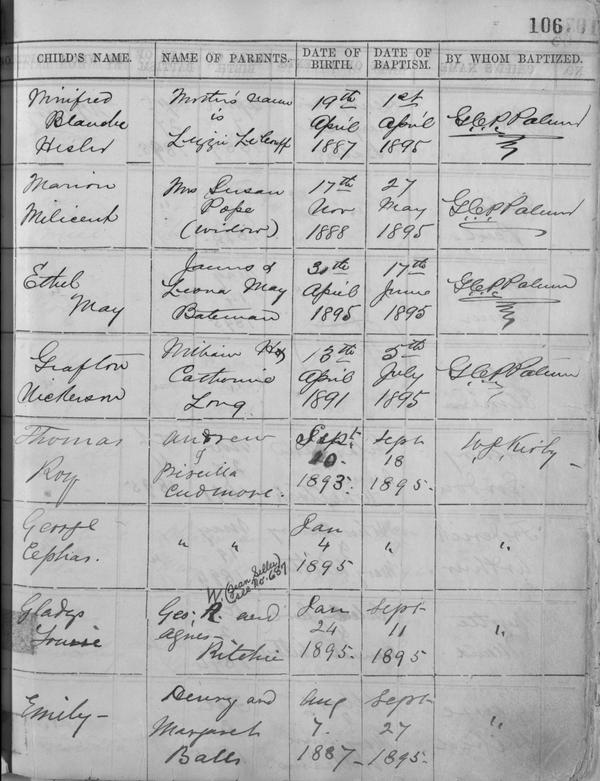 106
CHILD'S NAME. NAME OF PARENTS. DATE OF BIRTH. DATE OF BAPTISM. BY WHOM BAPTIZED.
Winifred Mother's name 19th 1st
Blanche is April April G.C.P. Palmer
Hisler Lizzie 1887 1895
Marion Mrs Susan 17th 27
Milicent Pope Nov May G.C.P. Palmer
(Widow) 1888 1895
Ethel James & 30th 17th
May Leona May April June G.C.P. Palmer
Bateman 1895 1895
Grafton William H & 13th 5th
Nickerson Catherine April July G.C.P. Palmer
Long 1891 1895
Thomas Andrew Sept. Sept W.J. Kirby -
Roy & Priscilla 10. 18
Cudmore. 1893. 1895.
George Jan
Cephas. " " 4 " "
1895
W. (Jean Selley)
Case No. 687
Gladys Geo. R. and Jan Sept
Louise Agnes 24 11 "
Ritchie 1895. 1895
Emily - Henry and Aug Sept
Margaret 7. 27 "
Balls 1887 - 1895.